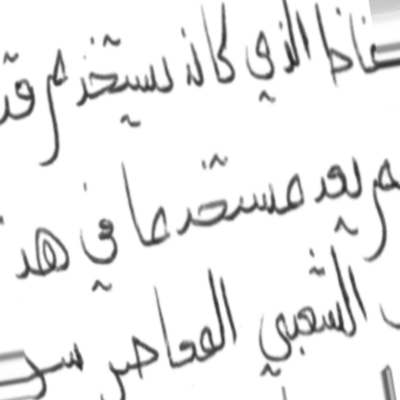 الذي كان يستخدم
يعد مستخدما في هذ
الشعبي المعاصر